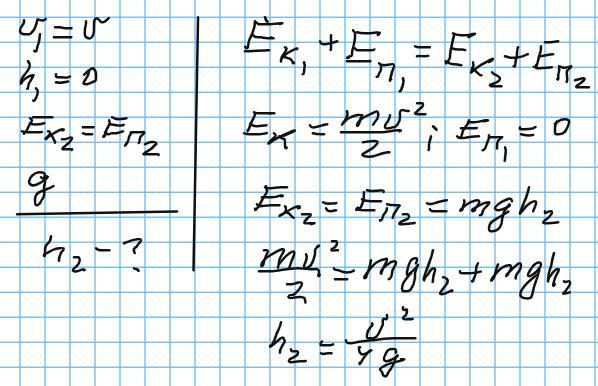 υ₁ = υ
h₁ = 0
Eк₂ = Eп₂
g
h₂ – ?
Eк₁ + Eп₁ = Eк₂ + Eп₂
Eк = mυ²/2 ; Eп₁ = 0
Eк₂ = Eп₂ = mgh₂
mυ²/2 = mgh₂ + mgh₂
h₂ = υ²/4g